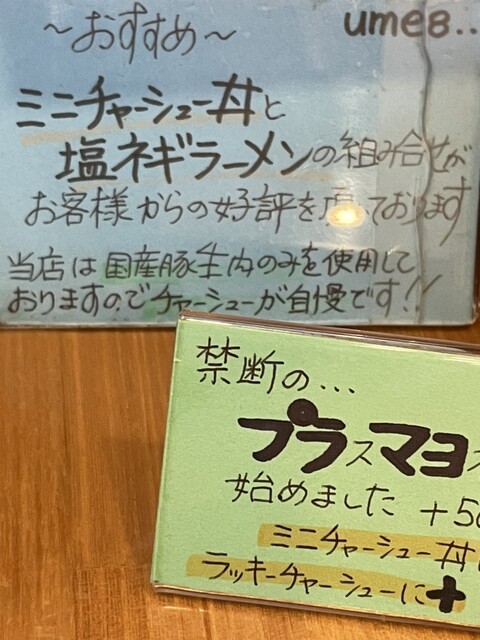 ~おすすめ~
ume8..
ミニチャーシュー丼と
塩ネギラーメンの組み合せが
お客様からの好評を頂いております
当店は国産豚生肉のみを使用して
おりますのでチャーシューが自慢です!!
禁断の...
プラスマヨ
始めました +50
ミニチャーシュー丼
ラッキーチャーシューに+